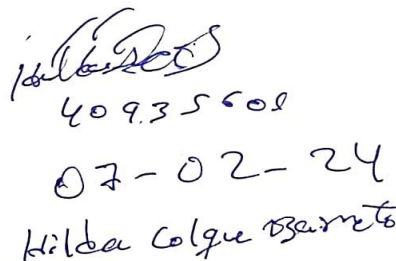 409.35608
07-02-24
Hilda Colque Barreto